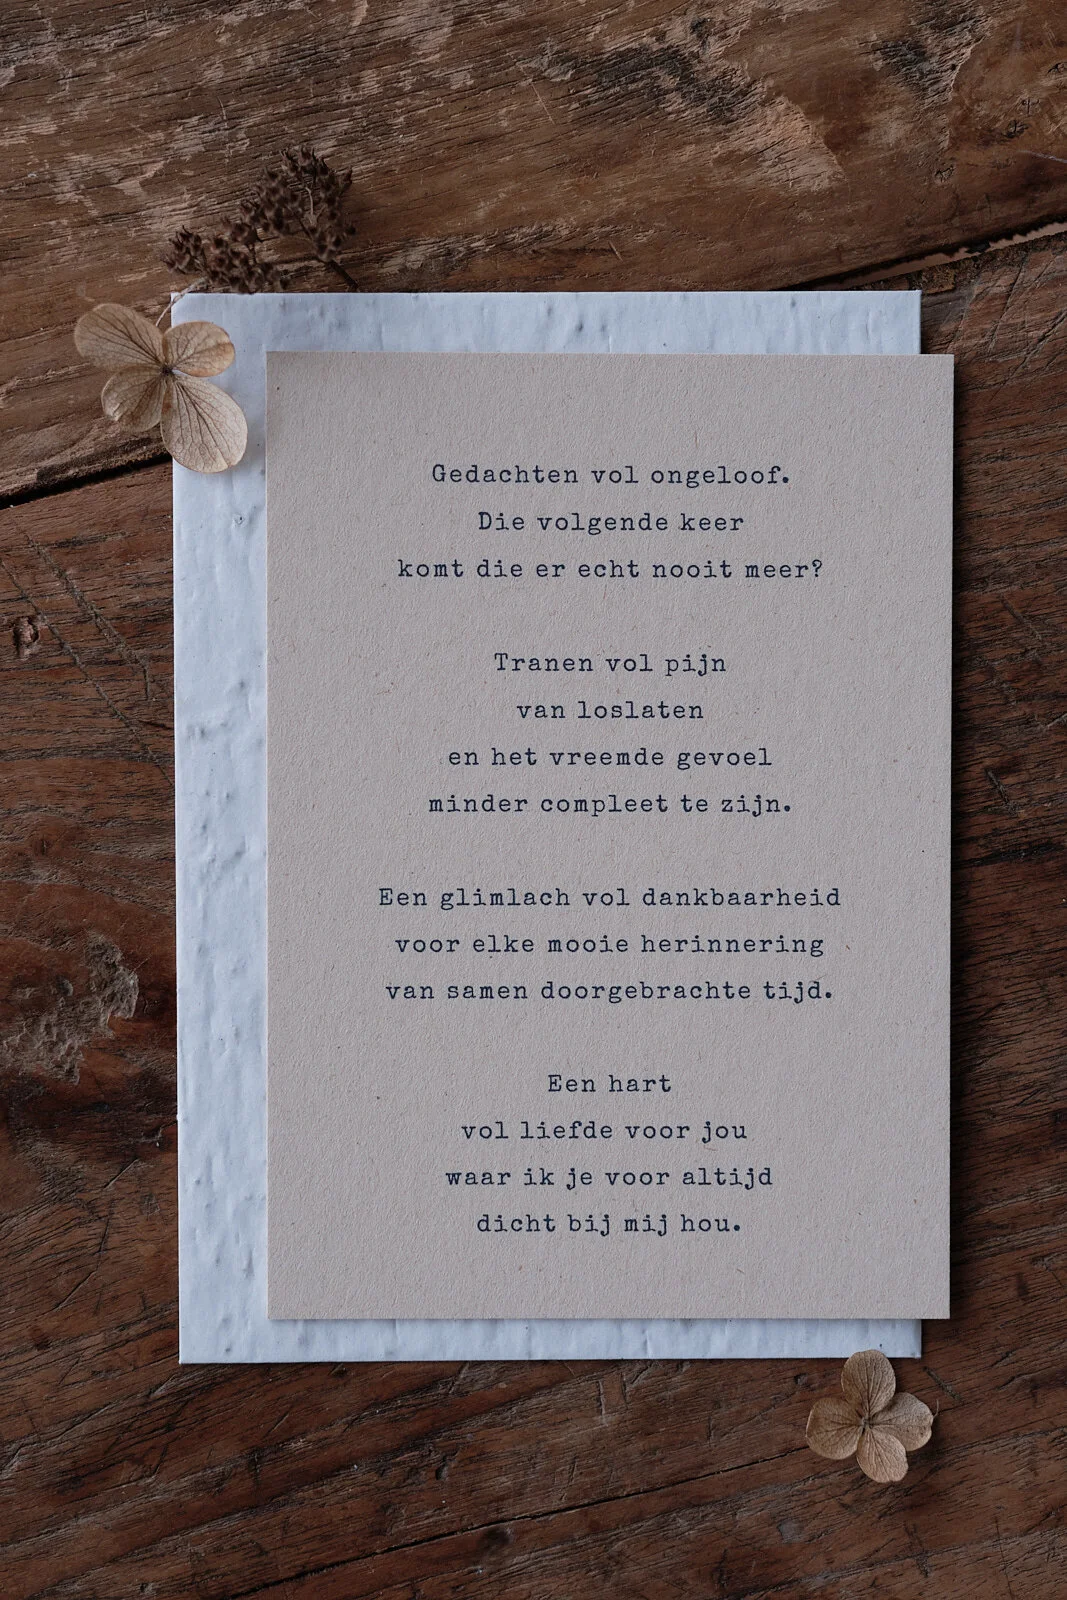 Gedachten vol ongeloof.
Die volgende keer
komt die er echt nooit meer?
Tranen vol pijn
van loslaten
en het vreemde gevoel
minder compleet te zijn.
Een glimlach vol dankbaarheid
voor elke mooie herinnering
van samen doorgebrachte tijd.
Een hart
vol liefde voor jou
waar ik je voor altijd
dicht bij mij hou.